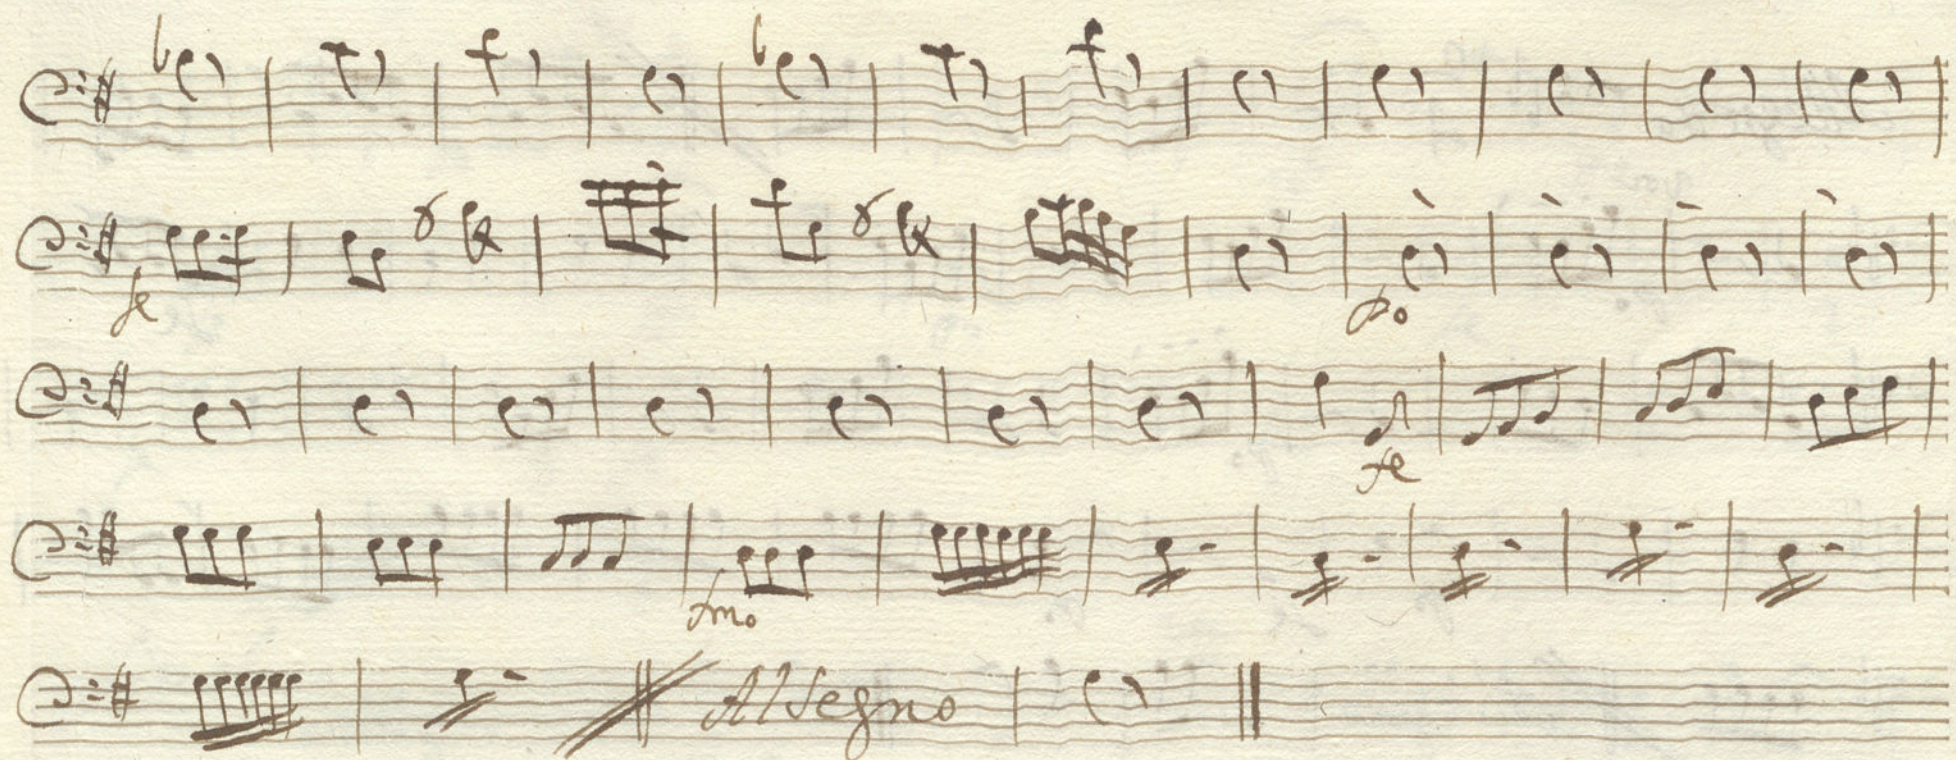 fe
Po
fe
fmo
Al Segno